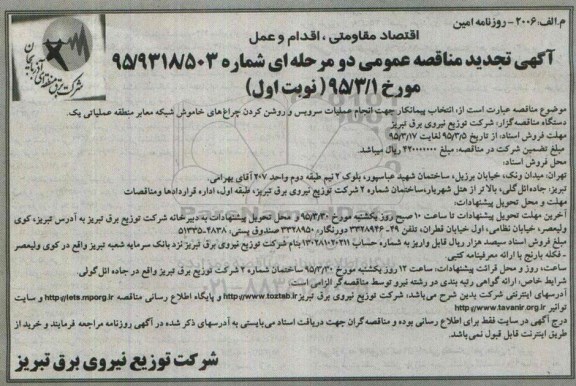 م.الف: ۲۰۰۶- روزنامه امین
اقتصاد مقاومتی، اقدام و عمل
آگهی تجدید مناقصه عمومی دو مرحله ای شماره ۹۵/۹۳۱۸/۵۰۳
مورخ ۹۵/۳/۱ (نوبت اول)
شرکت برق منطقه‌ای آذربایجان
موضوع مناقصه عبارت است از، انتخاب پیمانکار جهت انجام عملیات سرویس و روشن کردن چراغ های خاموش شبکه معابر منطقه عملیاتی یک.
دستگاه مناقصه گزار، شرکت توزیع نیروی برق تبریز
مهلت فروش اسناد: از تاریخ ۹۵/۳/۵ لغایت ۹۵/۳/۱۷
مبلغ تضمین شرکت در مناقصه، مبلغ ۴۲۰۰۰۰۰۰۰ ریال میباشد.
محل فروش اسناد:
تهران، میدان ونک، خیابان برزیل، ساختمان شهید عباسپور، بلوک ۲ نیم طبقه دوم واحد ۲۰۷ آقای بهرامی.
تبریز، جاده ائل گلی، بالا تر از هتل شهریار، ساختمان شماره ۲ شرکت توزیع نیروی برق تبریز، طبقه اول، اداره قراردادها ومناقصات
مهلت و محل تحویل پیشنهادات:
آخرین مهلت تحویل پیشنهادات تا ساعت ۱۰ صبح روز یکشنبه مورخ ۹۵/۳/۳۰ و محل تحویل پیشنهادات به دبیرخانه شرکت توزیع برق تبریز به آدرس تبریز، کوی
ولیعصر، خیابان نظامی، اول خیابان قطران، تلفن ۴۹-۳۳۲۸۹۴۶ دورنگار، ۳۳۲۸۹۵۰ صندوق پستی، ۴۸۳۸-۵۱۳۳۵
مبلغ فروش اسناد سیصد هزار ریال قابل واریز به شماره حساب ۱۳۰۲۸۱۰۲۰۲۱۱ بنام شرکت توزیع نیروی برق تبریز نزد بانک سرمایه شعبه تبریز واقع در کوی ولیعصر
- فلکه بارنج با ارائه معرفینامه کتبی.
ساعت، روز و محل قرائت پیشنهادات: ساعت ۱۲ روز یکشنبه مورخ ۹۵/۳/۳۰ ساختمان شماره ۲ شرکت توزیع برق تبریز واقع در جاده ائل گولی.
شرایط خاص، ارائه گواهی رتبه بندی در رشته نیرو توسط مناقصه گر الزامی است.
آدرسهای اینترنتی شرکت بدین شرح می باشد، شرکت توزیع نیروی برق تبریز http://www.toztab.ir و پایگاه اطلاع رسانی مناقصه http://iets.mporg.ir و سایت
توانیر http://www.tavanir.org.ir
درج آگهی در سایت فقط برای اطلاع رسانی بوده و مناقصه گران جهت دریافت اسناد می بایستی به آدرسهای ذکر شده در آگهی روزنامه مراجعه فرمایند و خرید از
طریق اینترنت قابل قبول نمی باشد.
شرکت توزیع نیروی برق تبریز